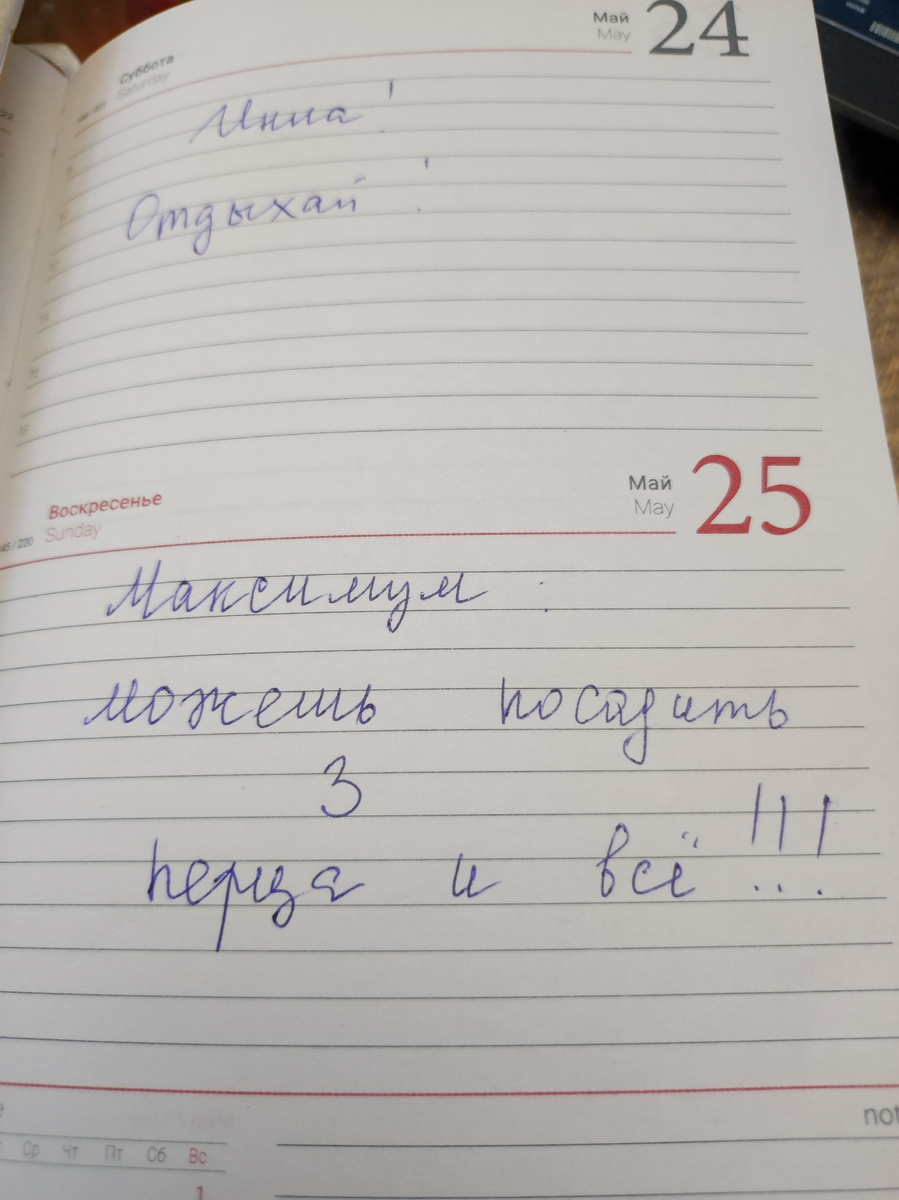 Май
May
24
Суббота
Saturday
Инна!
Отдыхай!
Май
May
25
Воскресенье
Sunday
145 / 220
Максимум :
можешь посадить
3
перца и всё!!!
Ср Чт Пт Сб Вс
1